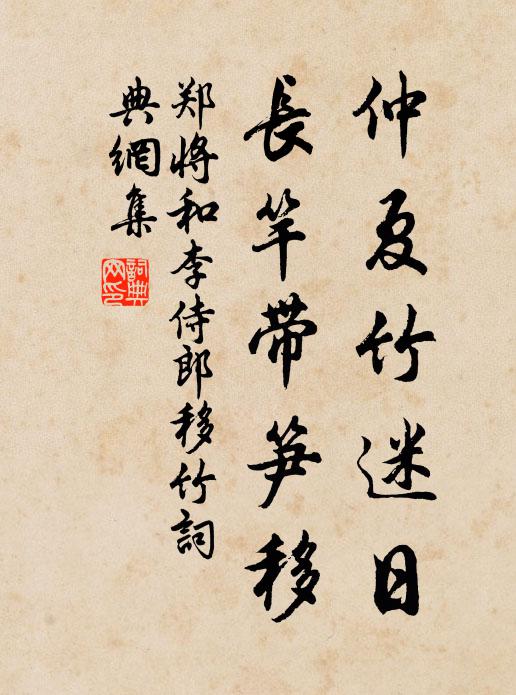 仲夏竹迷日
長竿帶笋移
郑將和李侍郎移竹詞
典網集
詞典網印